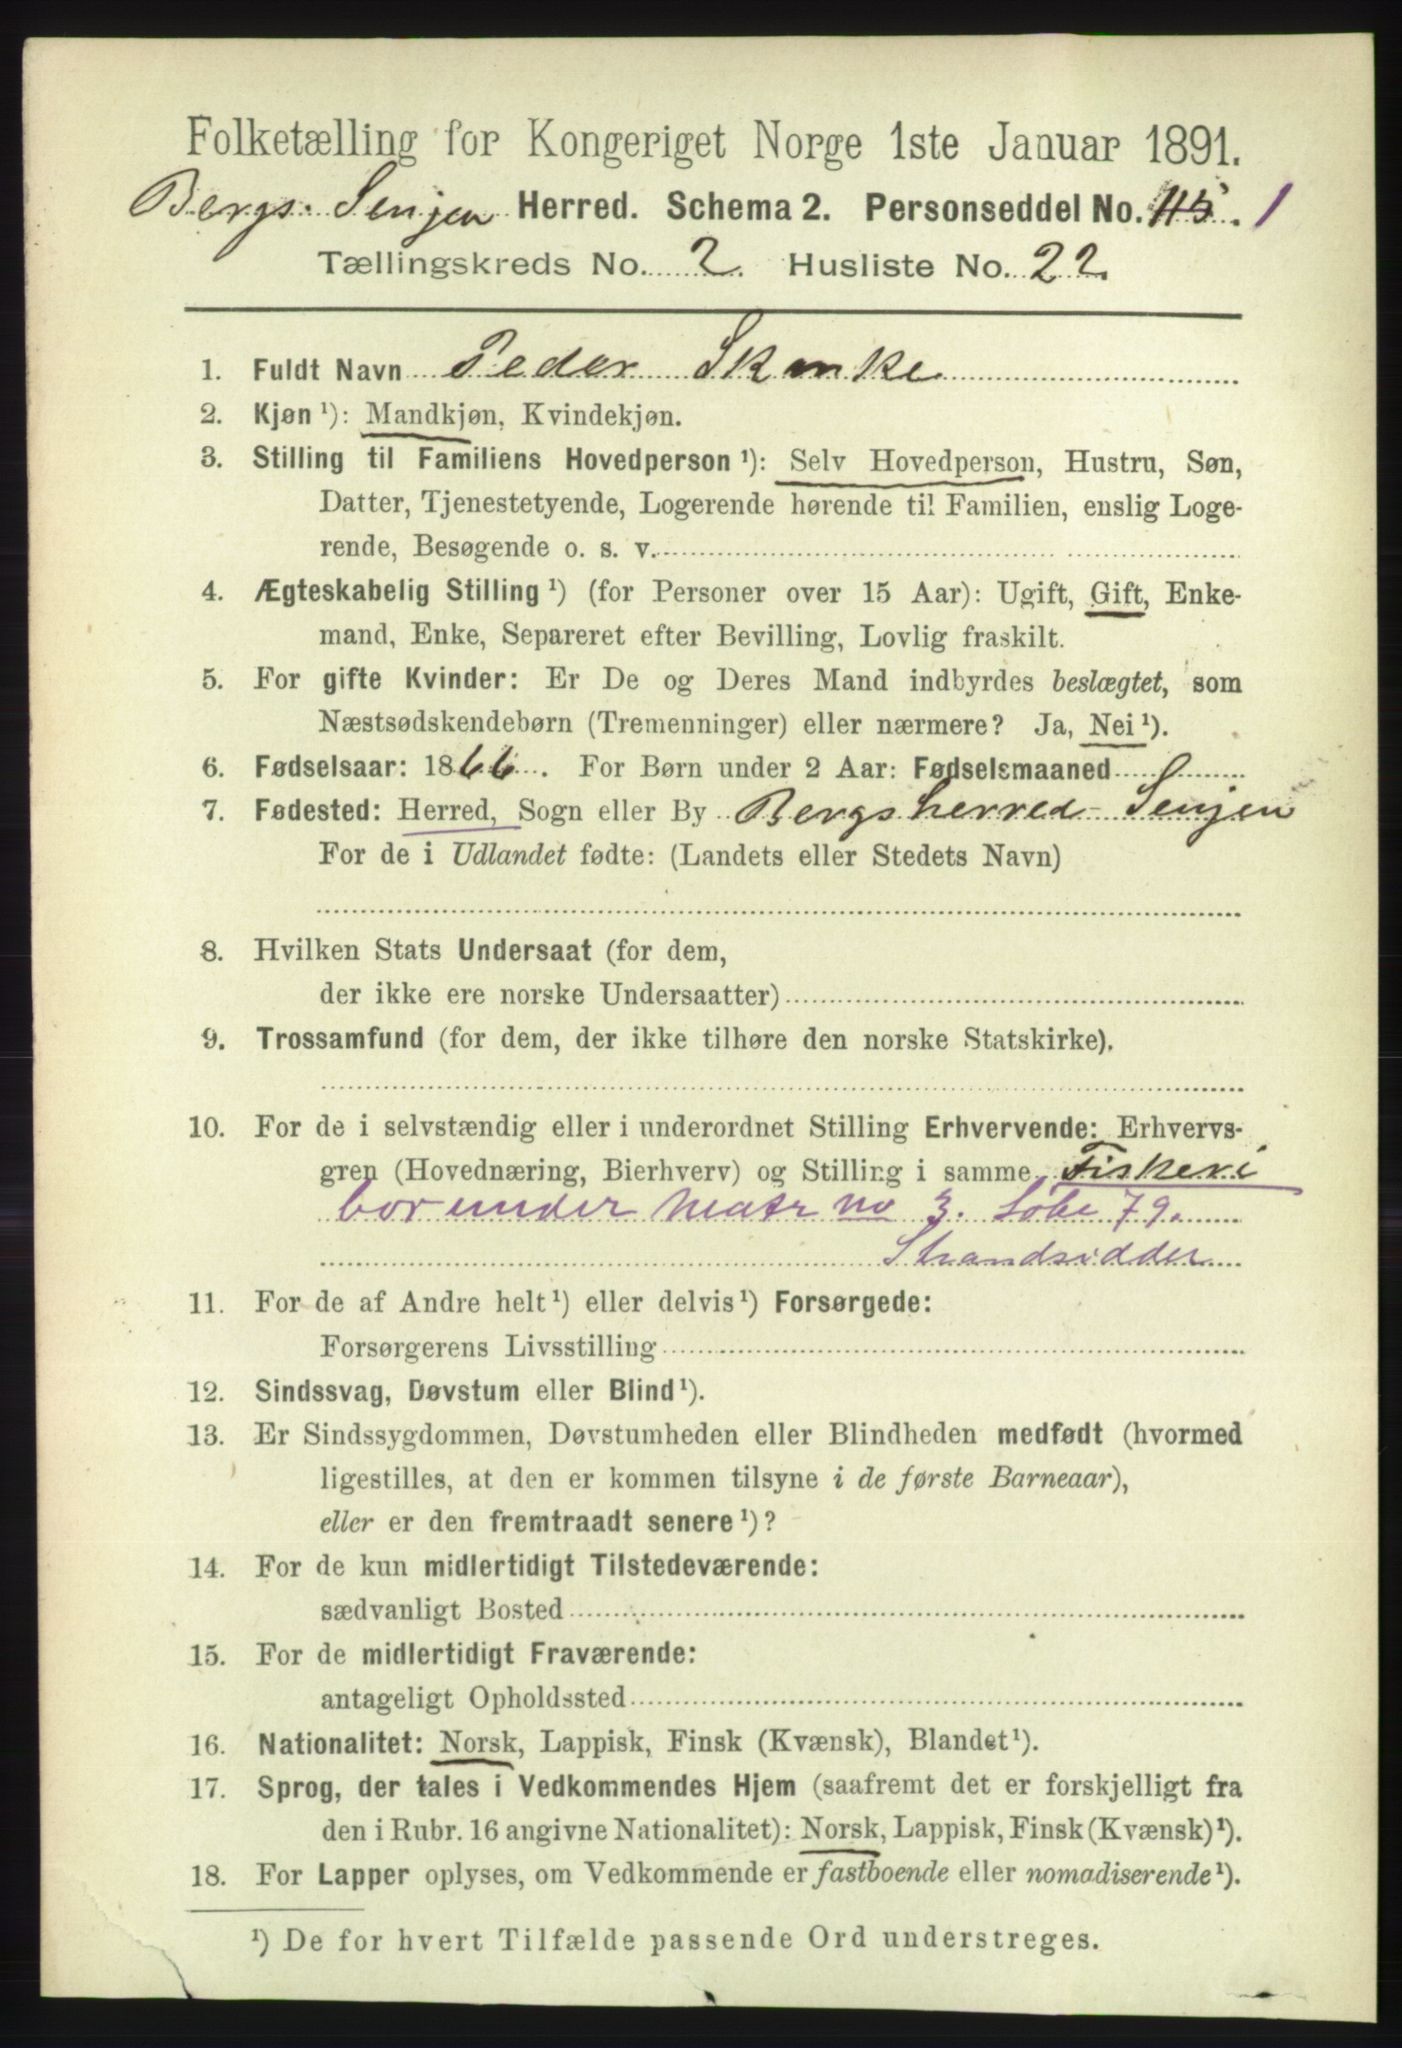 Folketælling for Kongeriget Norge 1ste Januar 1891.
Bergs. Senjen Herred. Schema 2. Personseddel No. 115. 1
Tællingskreds No. 2. Husliste No. 22
1. Fuldt Navn Peder Skanke
2. Kjøn ¹): Mandkjøn, Kvindekjøn.
3. Stilling til Familiens Hovedperson ¹): Selv Hovedperson, Hustru, Søn,
Datter, Tjenestetyende, Logerende hørende til Familien, enslig Loge-
rende, Besøgende o. s. v.
4. Ægteskabelig Stilling ¹) (for Personer over 15 Aar): Ugift, Gift, Enke-
mand, Enke, Separeret efter Bevilling, Lovlig fraskilt.
5. For gifte Kvinder: Er De og Deres Mand indbyrdes beslægtet, som
Næstsødskendebørn (Tremenninger) eller nærmere? Ja, Nei ¹).
6. Fødselsaar: 1866. For Børn under 2 Aar: Fødselsmaaned
7. Fødested: Herred, Sogn eller By Bergsherred Senjen
For de i Udlandet fødte: (Landets eller Stedets Navn)
8. Hvilken Stats Undersaat (for dem,
der ikke ere norske Undersaatter)
9. Trossamfund (for dem, der ikke tilhøre den norske Statskirke).
10. For de i selvstændig eller i underordnet Stilling Erhvervende: Erhvervs-
gren (Hovednæring, Bierhverv) og Stilling i samme Fiskeri
bor under Matr no 3. Løbe 79.
Strandsidder
11. For de af Andre helt ¹) eller delvis ¹) Forsørgede:
Forsørgerens Livsstilling
12. Sindssvag, Døvstum eller Blind ¹).
13. Er Sindssygdommen, Døvstumheden eller Blindheden medfødt (hvormed
ligestilles, at den er kommen tilsyne i de første Barneaar),
eller er den fremtraadt senere ¹)?
14. For de kun midlertidigt Tilstedeværende:
sædvanligt Bosted
15. For de midlertidigt Fraværende:
antageligt Opholdssted
16. Nationalitet: Norsk, Lappisk, Finsk (Kvænsk), Blandet ¹).
17. Sprog, der tales i Vedkommendes Hjem (saafremt det er forskjelligt fra
den i Rubr. 16 angivne Nationalitet): Norsk, Lappisk, Finsk (Kvænsk) ¹).
18. For Lapper oplyses, om Vedkommende er fastboende eller nomadiserende ¹).
¹) De for hvert Tilfælde passende Ord understreges.